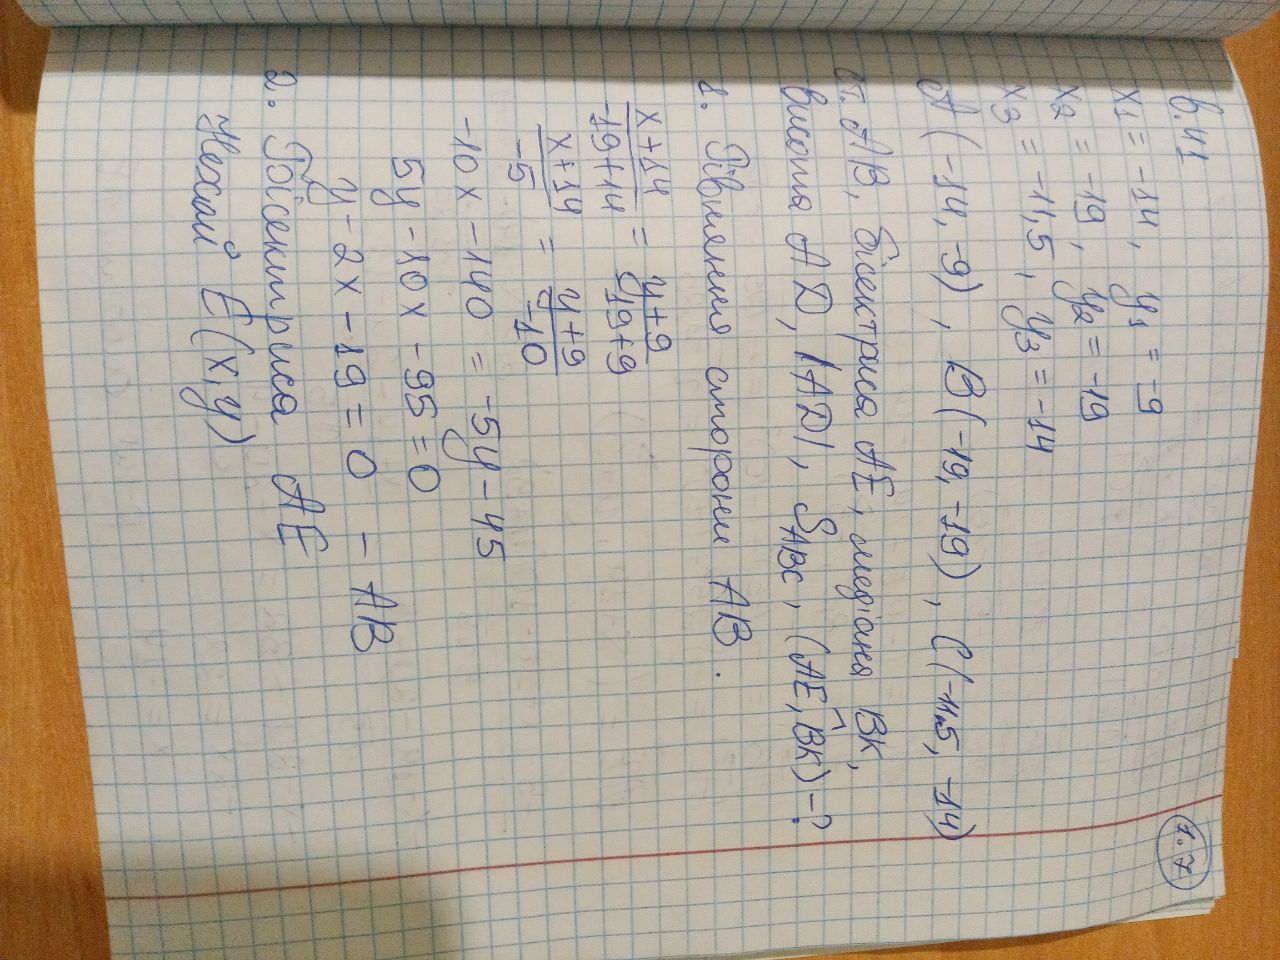 1.7
в.41
x1 = -14, y1 = -9
x2 = -19, y2 = -19
x3 = -11,5, y3 = -14
A(-14, -9), B(-19, -19), C(-11,5, -14)
ст. AB, бісектриса AE, медіана BK,
висота AD, |AD|, S_ABC, (AE,^BK) - ?
1. Рівняння сторони AB.
(x+14)/(-19+14) = (y+9)/(-19+9)
(x+14)/(-5) = (y+9)/(-10)
-10x - 140 = -5y - 45
5y - 10x - 95 = 0
y - 2x - 19 = 0 - AB
2. Бісектриса AE
Нехай E(x,y)